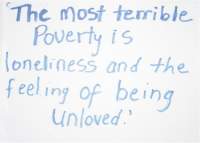 'The most terrible
Poverty is
loneliness and the
feeling of being
Unloved.'